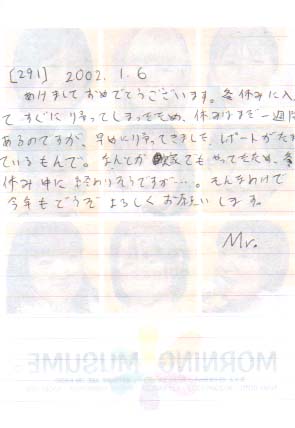 [291] 2002. 1. 6
あけましておめでとうございます。冬休みに入っ
てすぐに帰ってしまったため、休みはまだ一週間
あるのですが、早めに帰ってきました。レポートがたまっ
ているもんで。なんとか
てもやってきたため、冬
休み中に終わりそうですが…。そんなわけで
今年もどうぞよろしくお願いします。
Mr.
MORNING MUSUME